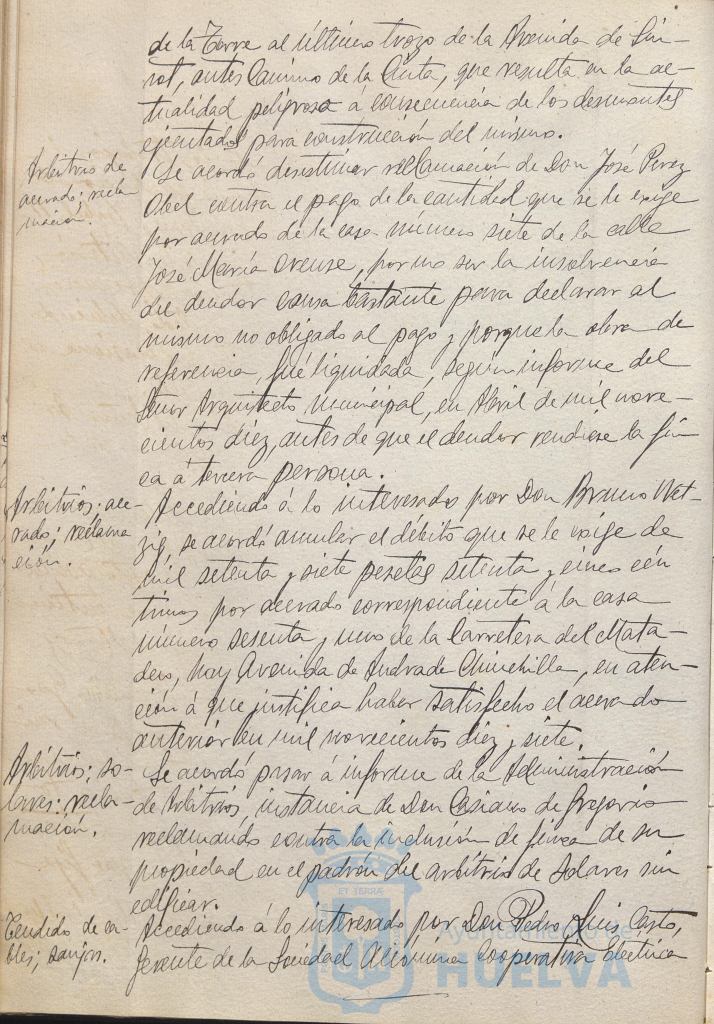 de la Torre al último trozo de la Avenida de Sun-
rot, antes Camino de la Cinta, que resulta en la ac-
tualidad peligroso á consecuencia de los desmontes
ejecutados para construcción del mismo.
Arbitrios de
acerado; recla-
mación.
Se acordó desestimar reclamación de Don José Perez
Abel contra el pago de la cantidad que se le exige
por acerado de la casa número siete de la calle
José María Orense, por no ser la insolvencia
del deudor causa bastante para declarar al
mismo no obligado al pago y porque la obra de
referencia, fué liquidada, según informe del
Señor Arquitecto Municipal, en Abril de mil nove-
cientos diez, antes de que el deudor vendiese la fin-
ca á tercera persona.
Arbitrios; ace-
rado; reclama
ción.
Accediendo á lo interesado por Don Bruno Wet-
zig, se acordó anular el débito que se le exige de
mil setenta y siete pesetas setenta y cinco cén
timos por acerado correspondiente á la casa
número sesenta y uno de la Carretera del Mata-
dero, hoy Avenida de Andrade Chinchilla, en aten-
ción á que justifica haber satisfecho el acerado
anterior en mil novecientos diez y siete.
Arbitrios; so-
lares; recla-
mación.
Se acordó pasar á informe de la Administración
de Arbitrios, instancia de Don Casiano de Gregorio
reclamando contra la inclusión de finca de su
propiedad en el padrón del arbitrio de Solares sin
edificar.
Tendido de ca-
bles; zanjas.
Accediendo á lo interesado por Don Pedro Luis Casto,
Gerente de la Sociedad Anónima Cooperativa Eléctrica
ET TERRÆ
Ayuntamiento de
HUELVA